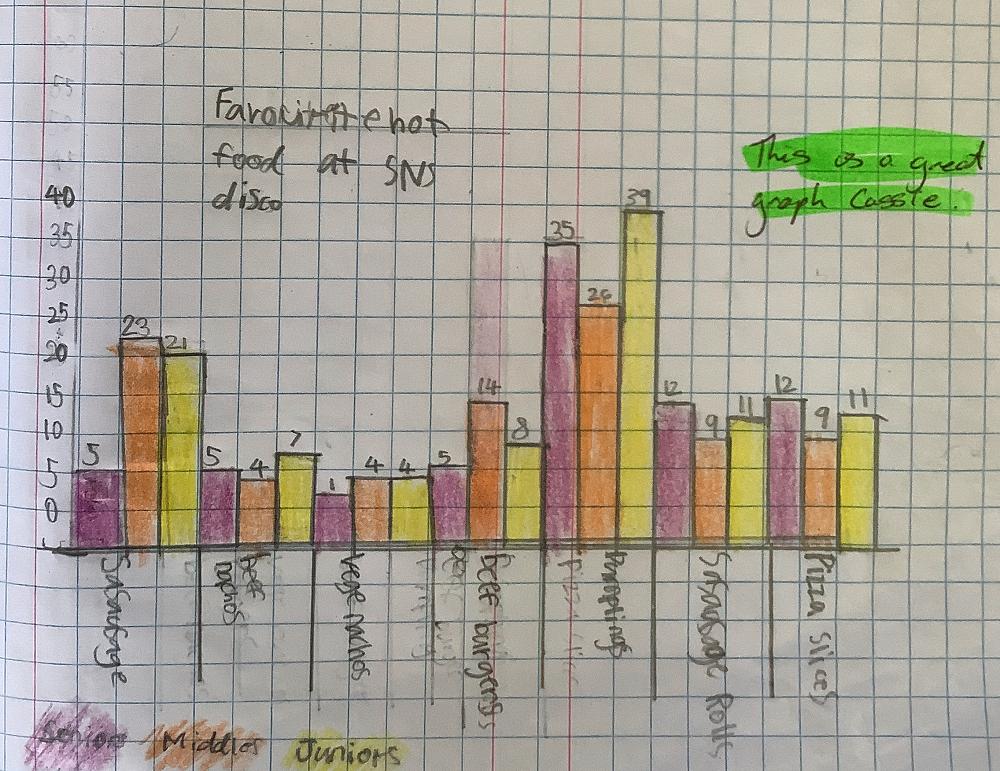 Favourite hot
food at SNS
disco
This is a great
graph Cassie.
40
35
30
25
20
15
10
5
0
5
23
21
5
4
7
1
4
4
5
14
8
35
26
39
12
9
11
12
9
11
Sasausage
Beef
nachos
Vege nachos
Beef burgers
Dumplings
Sasausage Rolls
Pizza Slices
Seniors Middles Juniors